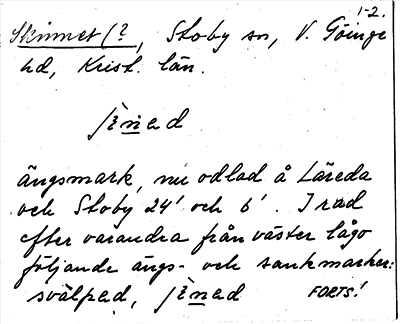 1-2.
Skinnet (?, Stoby sn, V. Göinge
hd, Krist. län.
ängsmark, nu odlad å Läreda
och Stoby 24' och 6'. I rad
efter varandra från väster lågo
följande ängs- och sankmarker:
svälpad, FORTS!